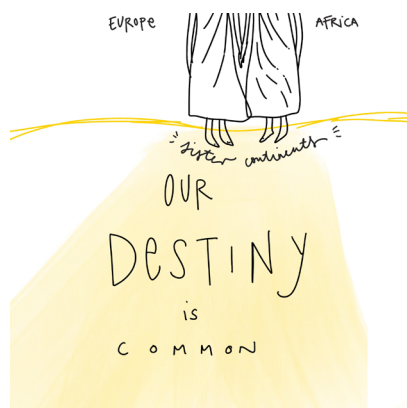 EUROPE AFRICA
sister continents
OUR
DESTINY
is
COMMON